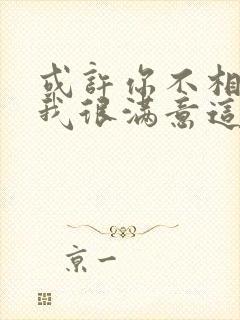 或許你不相
我很滿意這
京一